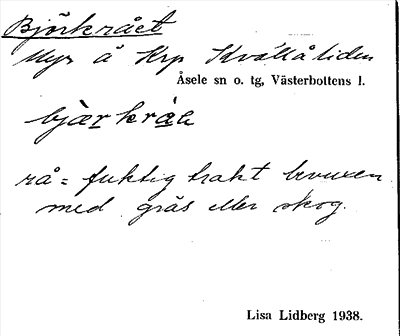 Björkrået
Myr å Krp Kvällåliden
Åsele sn o. tg, Västerbottens l.
bjær kråe
rå = fuktig trakt bevuxen
med gräs eller skog.
Lisa Lidberg 1938.